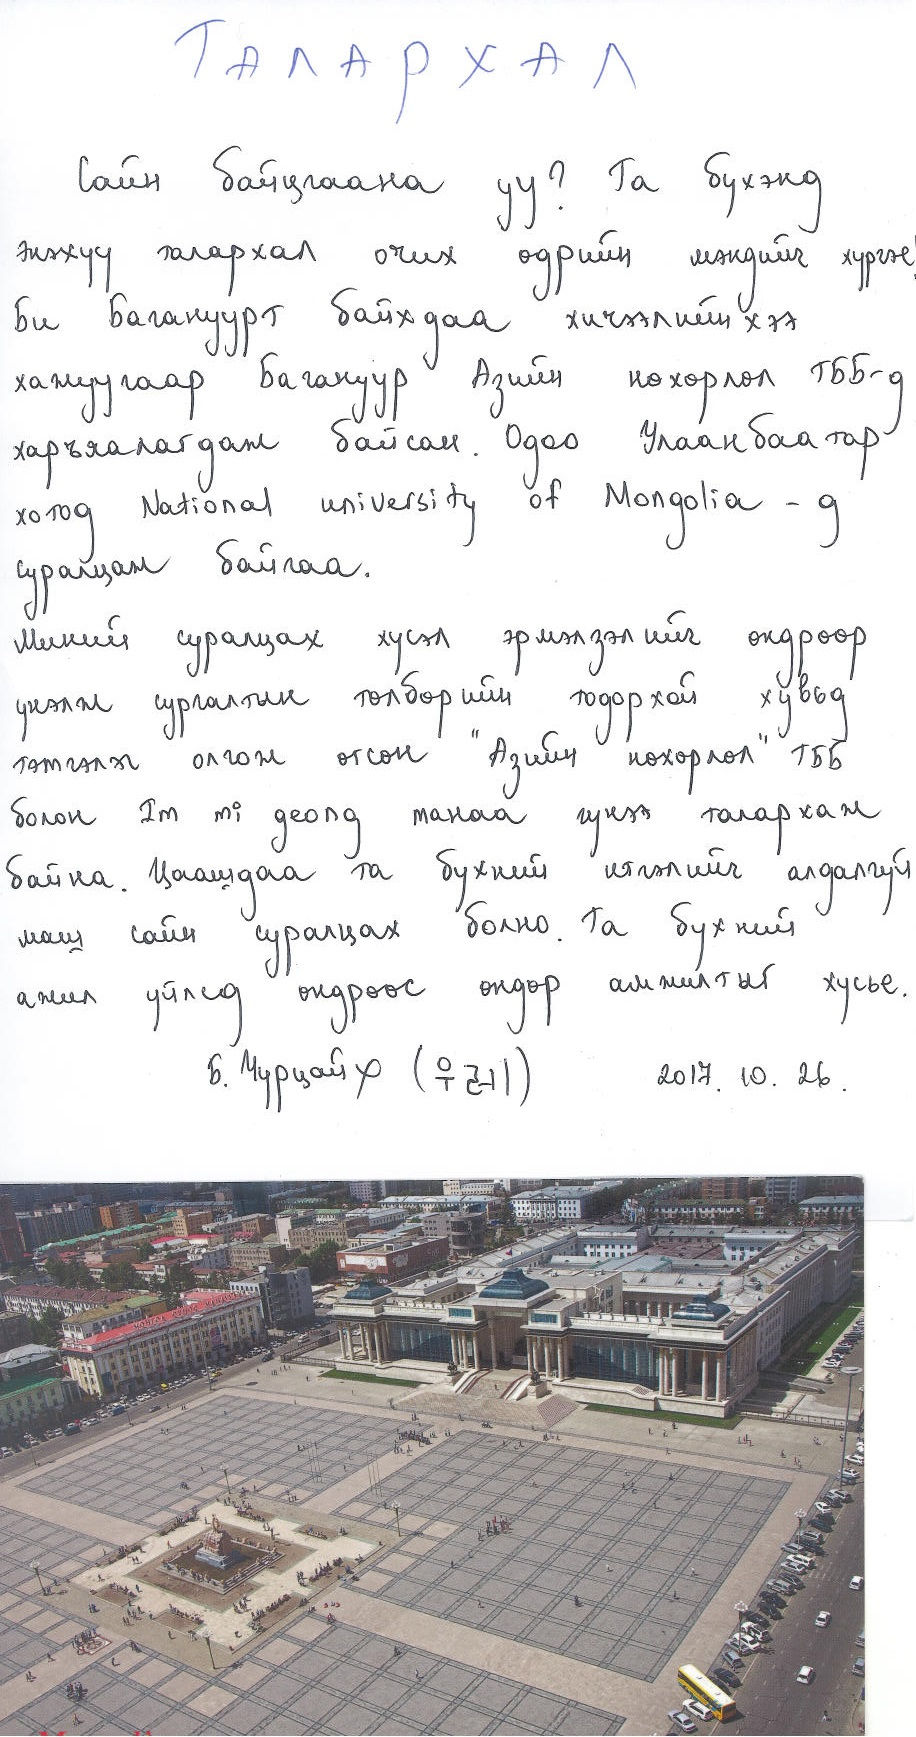 Талархал
Сайн байцгаана уу? Та бүхэнд
энэхүү талархал очих өдрийн мэндийг хүргэе!
Би Багануурт байхдаа хичээлийнхээ
хажуугаар Багануур Азийн нөхөрлөл ТББ-д
харъяалагдаж байсан. Одоо Улаанбаатар
хотод National university of Mongolia - д
суралцаж байгаа.
Миний суралцах хүсэл эрмэлзэлийг өндрөөр
үнэлж сургалтын төлбөрийн тодорхой хувьд
тэтгэлэг олгож өгсөн "Азийн нөхөрлөл" ТББ
болон Im mi jeong танаа гүнээ талархаж
байна. Цаашдаа та бүхний итгэлийг алдалгүй
маш сайн суралцах болно. Та бүхний
ажил үйлсэд өндрөөс өндөр амжилтыг хүсье.
Б. Нурцайх (우레) 2017. 10. 26.